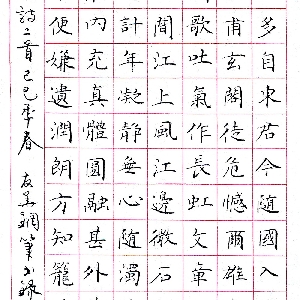 多自來君今随國入
甫玄閣徒危憾爾雄
歌吐氣作長虹文章
間江上風江邊微石
計年凝静無心随濁
内充真體圓融甚外
便嫌遺潤朗方知籠
詩二首己巳季春 友呈鋼筆小錄